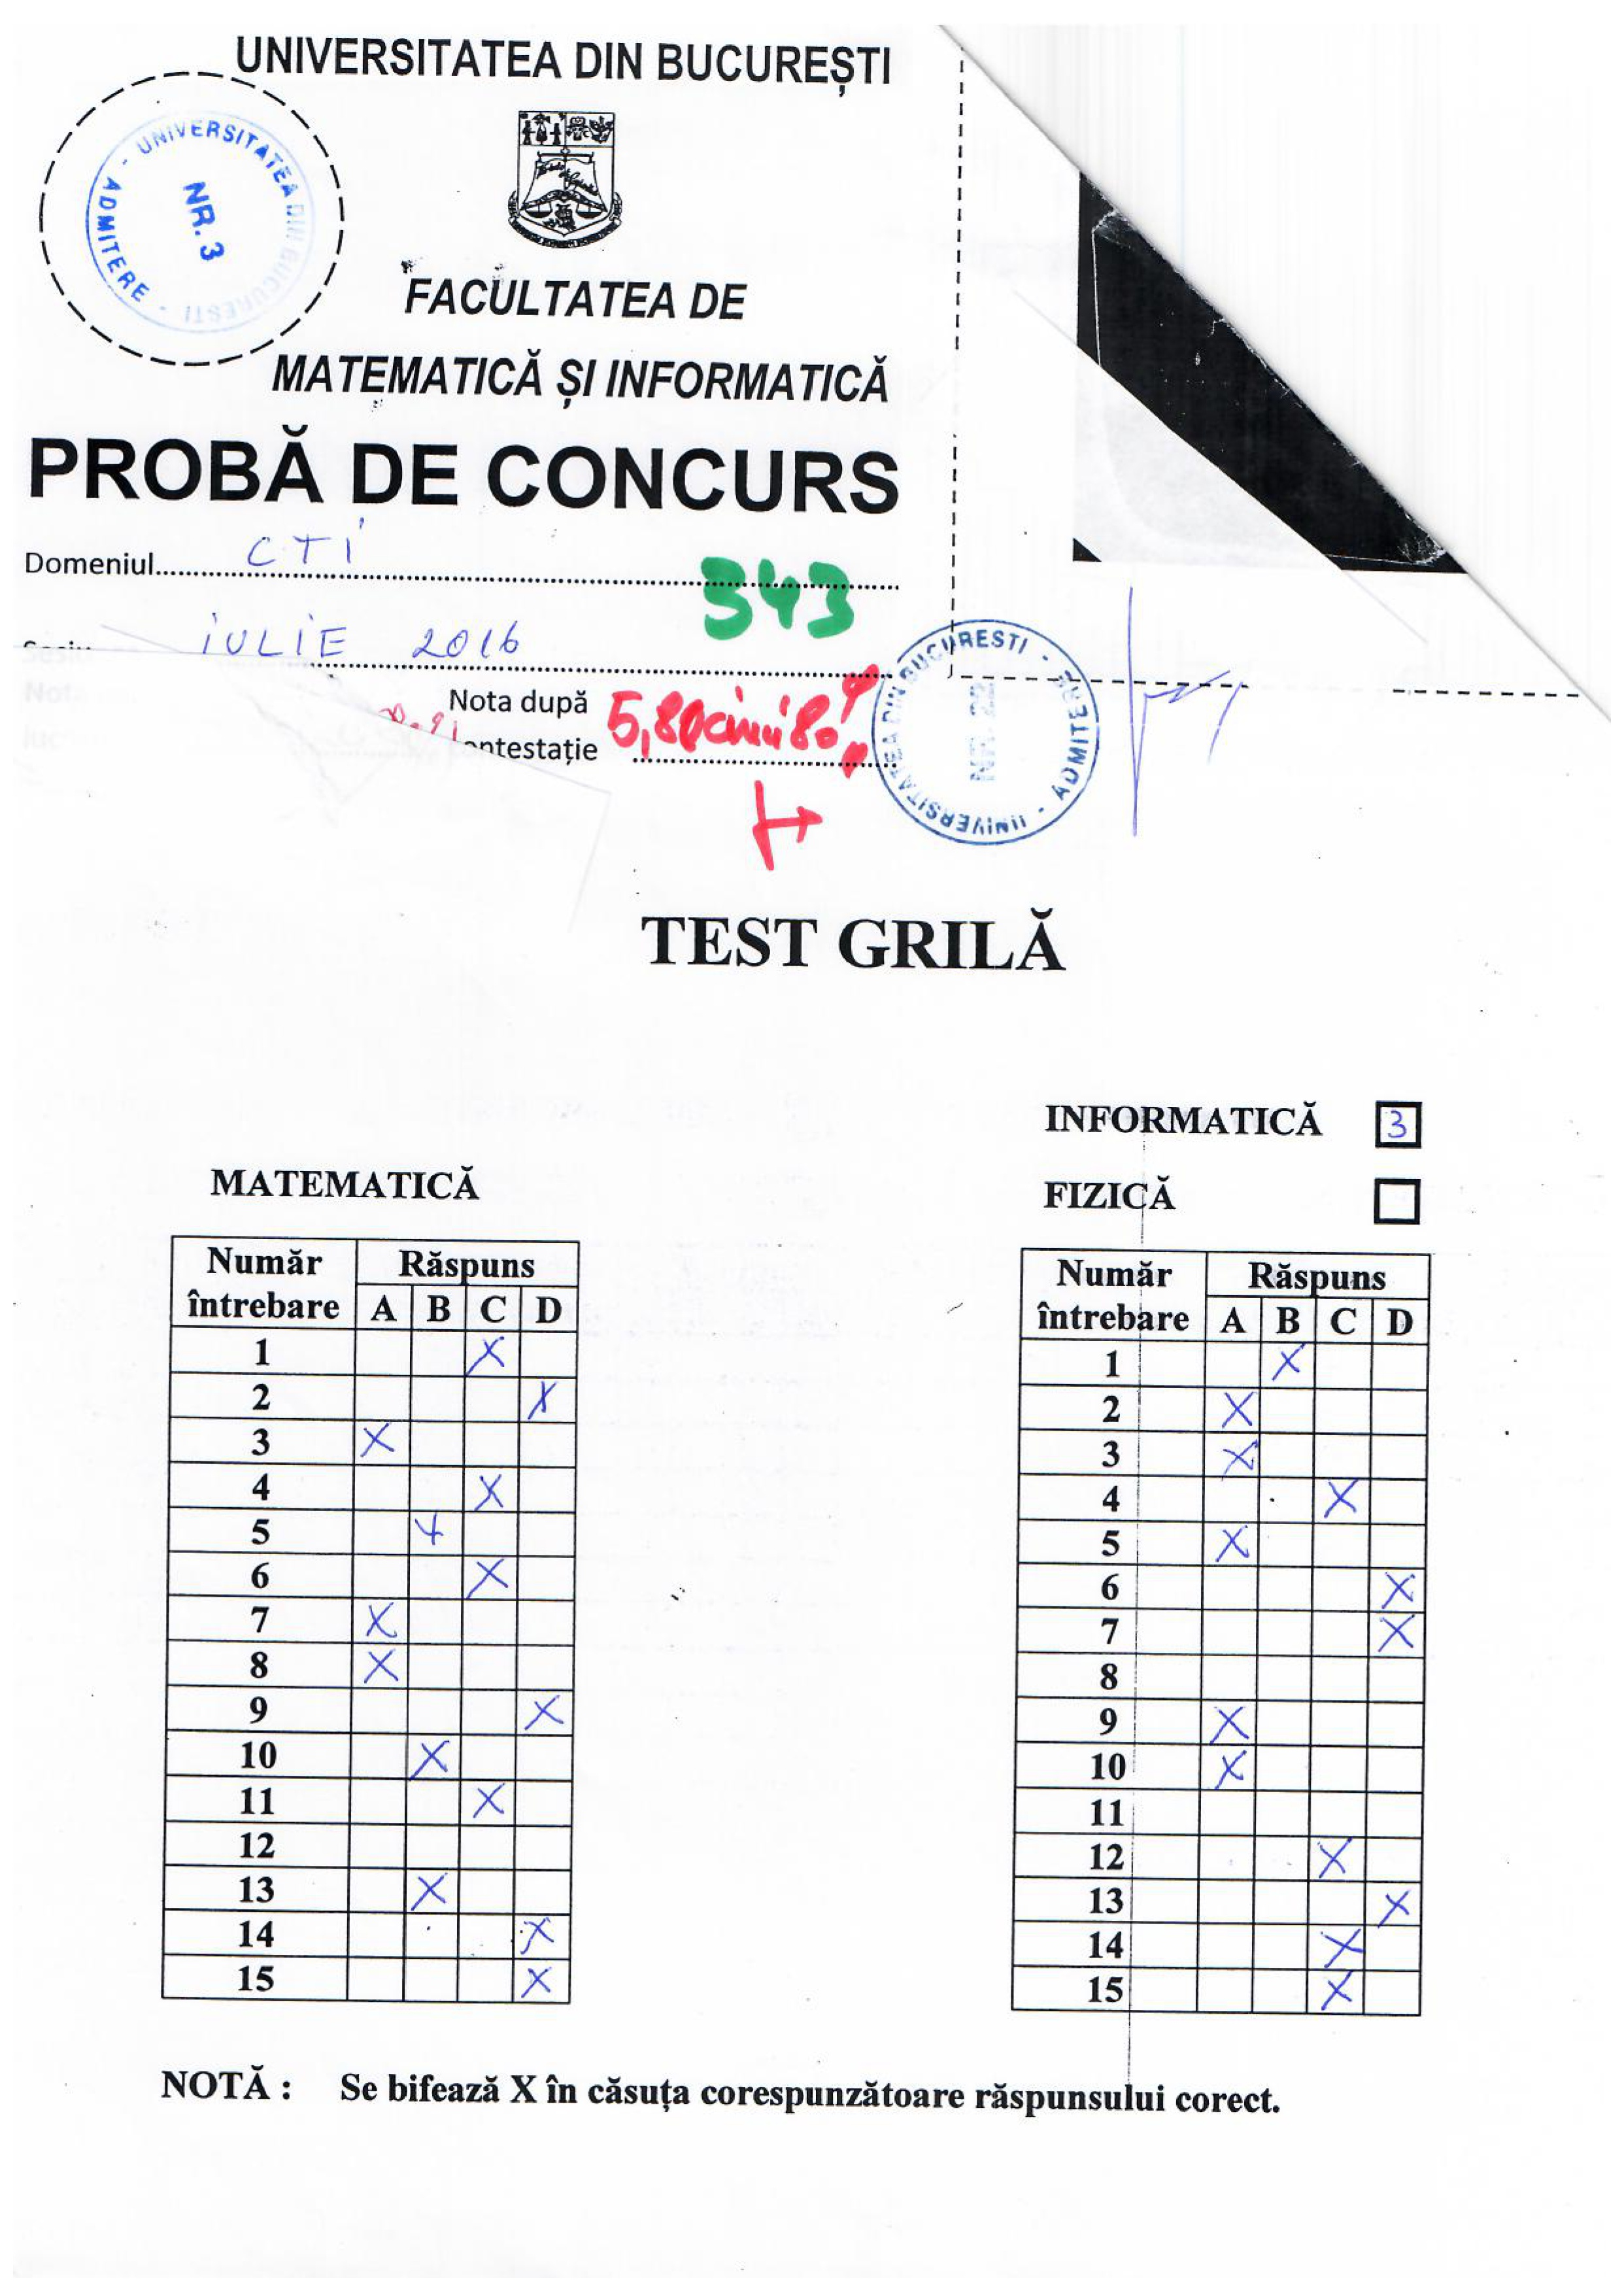 UNIVERSITATEA DIN BUCUREȘTI
UNIVERSITATEA DIN BUCURESTI - ADMITERE -
NR. 3
FACULTATEA DE
MATEMATICĂ ȘI INFORMATICĂ
PROBĂ DE CONCURS
Domeniul CTI
343
IULIE 2016
Nota după
5,80
UNIVERSITATEA DIN BUCURESTI - ADMITERE -
NR. 22
TEST GRILĂ
INFORMATICĂ 3
MATEMATICĂ
FIZICĂ
Număr întrebare Răspuns
A B C D
1 X
2 X
3 X
4 X
5 X
6 X
7 X
8 X
9 X
10 X
11 X
12
13 X
14 X
15 X
Număr întrebare Răspuns
A B C D
1 X
2 X
3 X
4 X
5 X
6 X
7 X
8
9 X
10 X
11
12 X
13 X
14 X
15 X
NOTĂ : Se bifează X în căsuța corespunzătoare răspunsului corect.